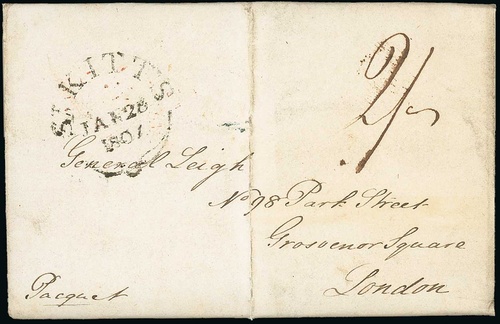 ST KITTS
JAN 28
1807
2/
General Leigh
No 98 Park Street
Grosvenor Square
London
Pacquet